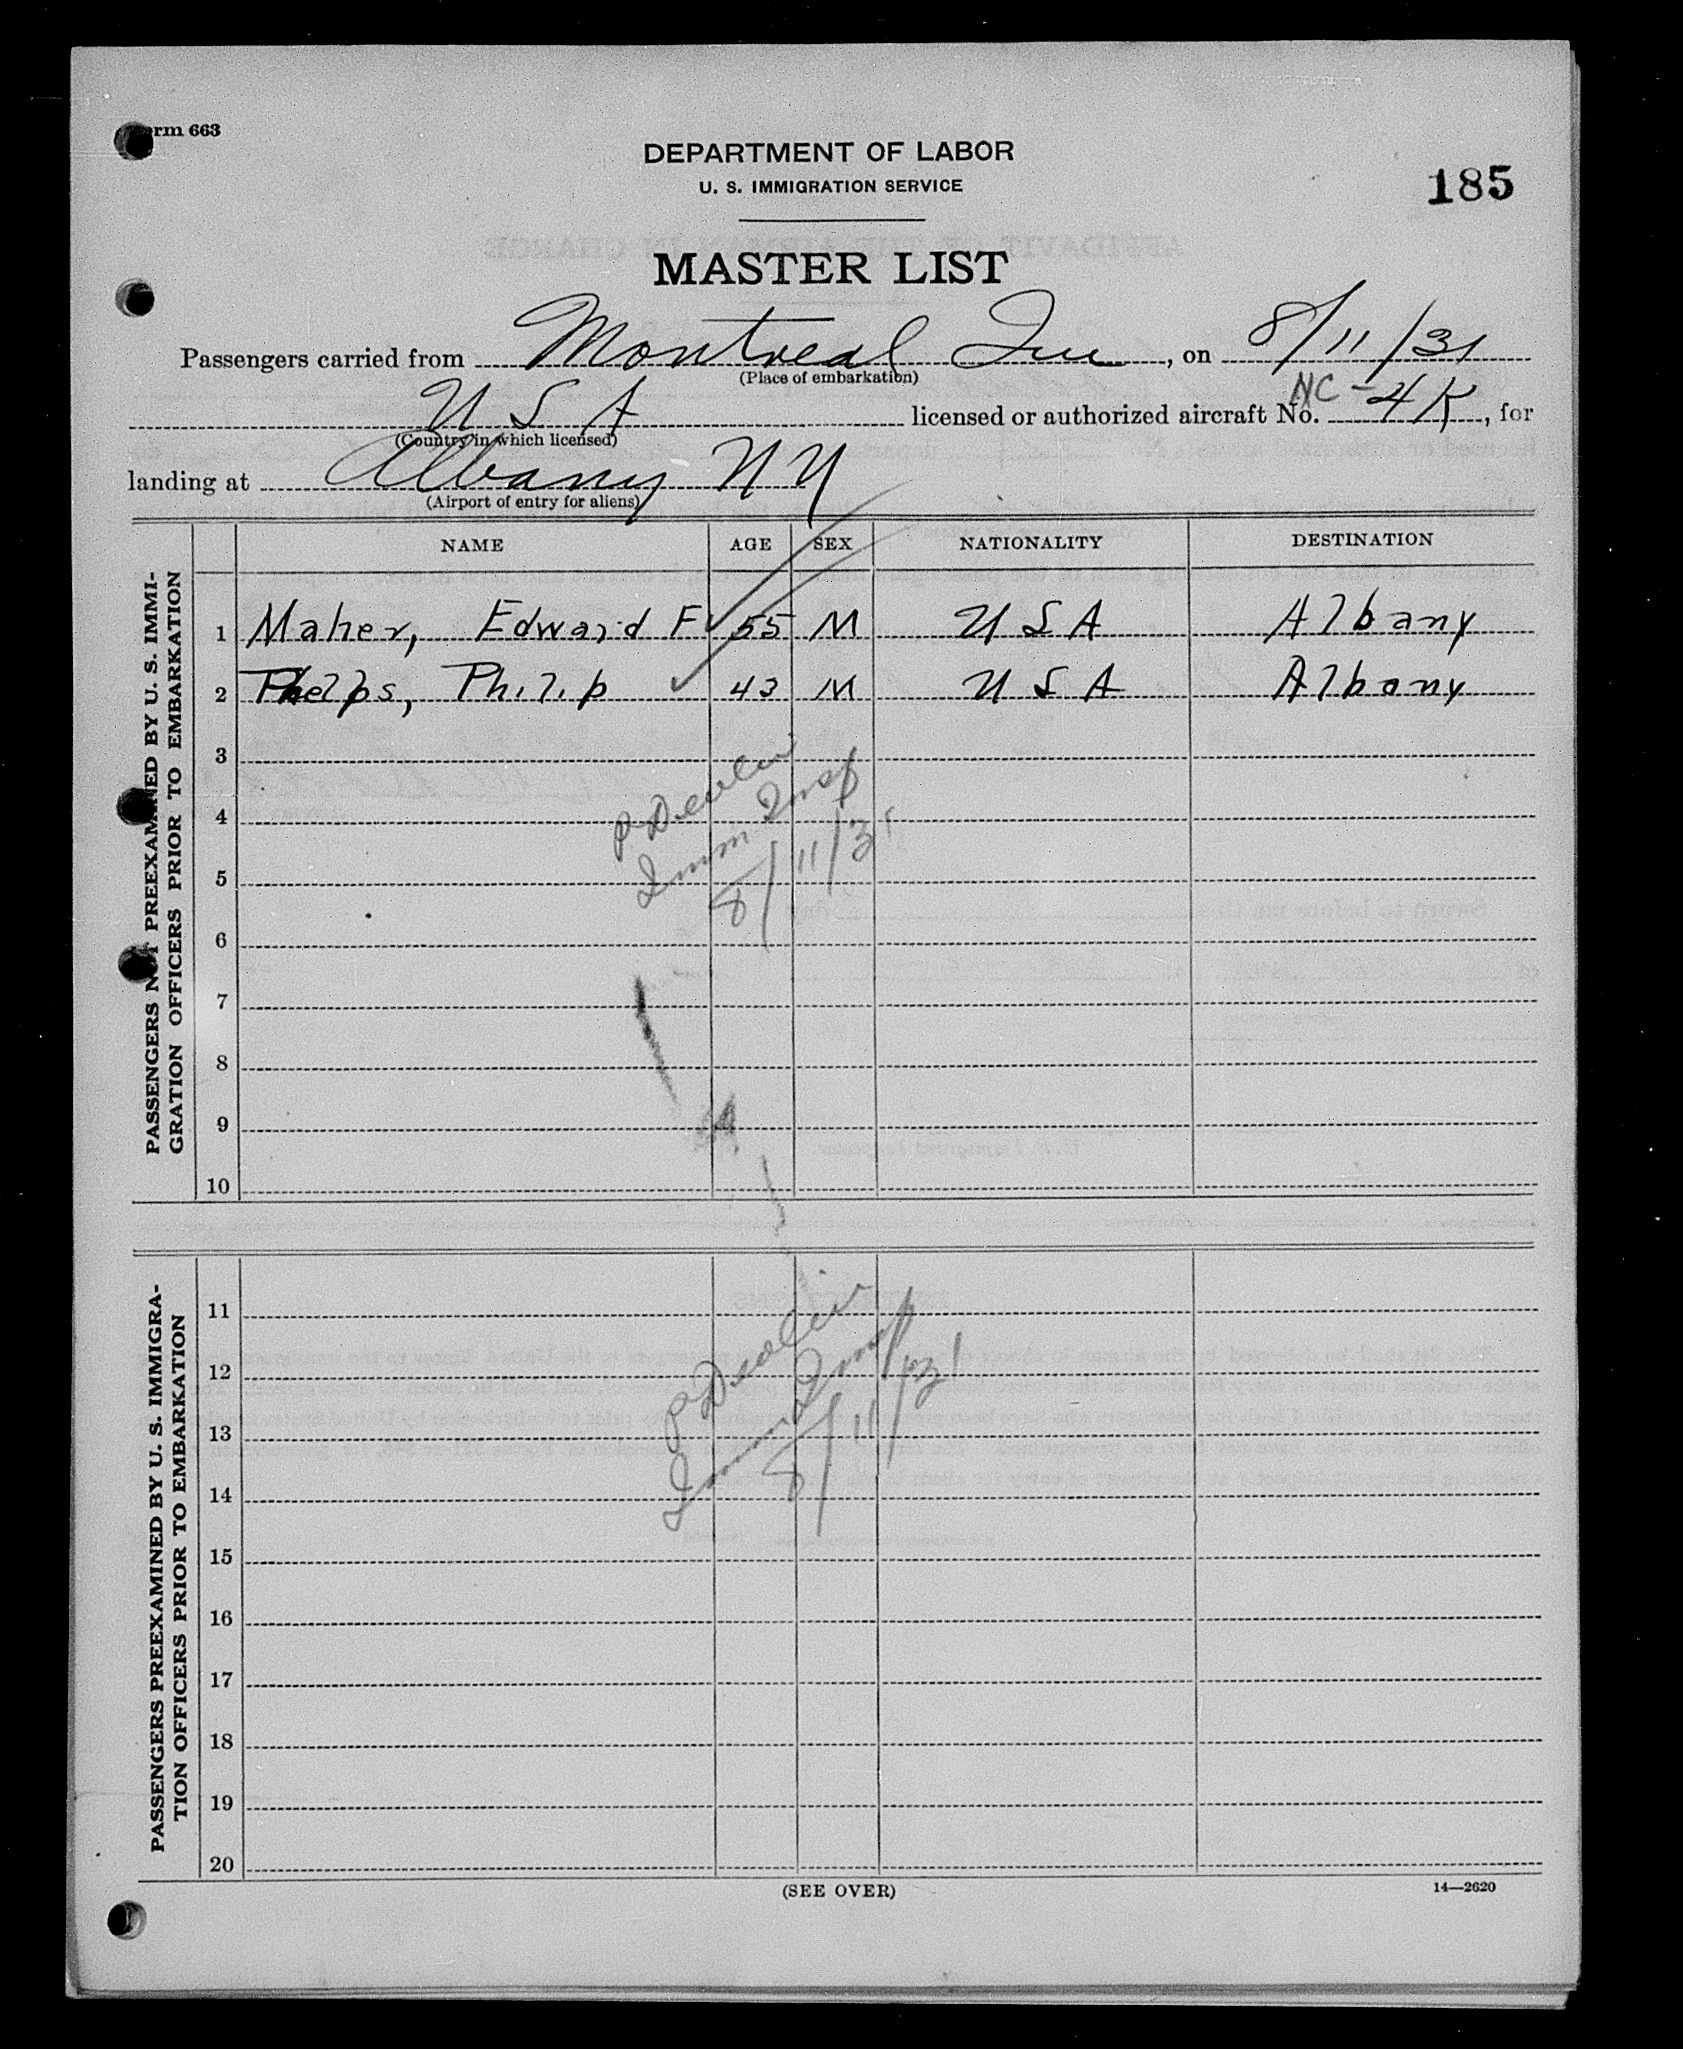 Form 663
DEPARTMENT OF LABOR
U. S. IMMIGRATION SERVICE
185
MASTER LIST
Passengers carried from Montreal Que, on 8/11/31
(Place of embarkation)
U S A licensed or authorized aircraft No. NC-4K, for
(Country in which licensed)
landing at Albany NY
(Airport of entry for aliens)
NAME AGE SEX NATIONALITY DESTINATION
PASSENGERS NOT PREEXAMINED BY U. S. IMMI-
GRATION OFFICERS PRIOR TO EMBARKATION
1 Maher, Edward F 55 M U S A Albany
2 Phelps, Philip 43 M U S A Albany
3
4
5
6
7
8
9
10
P Devlin
Imm Insp
8/11/31
PASSENGERS PREEXAMINED BY U. S. IMMIGRA-
TION OFFICERS PRIOR TO EMBARKATION
11
12
13
14
15
16
17
18
19
20
P Devlin
Imm Insp
8/11/31
(SEE OVER)
14—2620